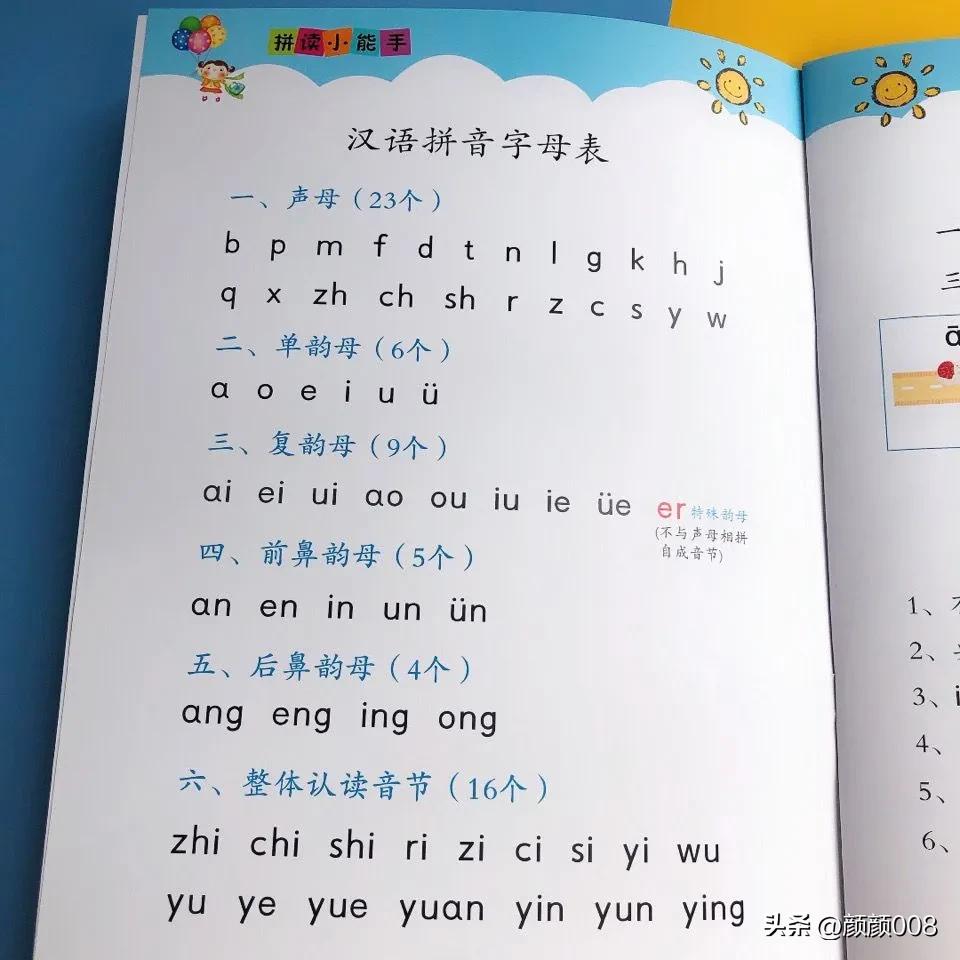 拼读小能手
汉语拼音字母表
一、声母（23个）
b p m f d t n l g k h j
q x zh ch sh r z c s y w
二、单韵母（6个）
ɑ o e i u ü
三、复韵母（9个）
ɑi ei ui ɑo ou iu ie üe er 特殊韵母
(不与声母相拼
自成音节)
四、前鼻韵母（5个）
ɑn en in un ün
五、后鼻韵母（4个）
ɑng eng ing ong
六、整体认读音节（16个）
zhi chi shi ri zi ci si yi wu
yu ye yue yuɑn yin yun ying
一
三
1、
2、
3、i
4、
5、
6、
头条 @颜颜008